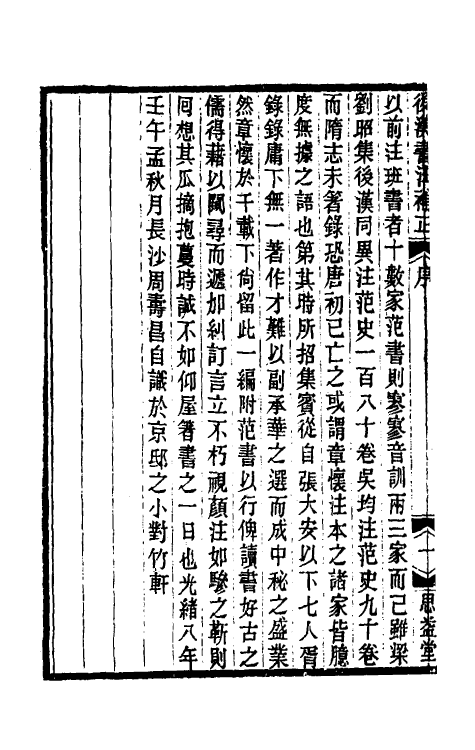 後漢書注補正 序 一 思益堂
以前注班書者十數家范書則寥寥音訓兩三家而已雖梁
劉昭集後漢同異注范史一百八十卷吳均注范史九十卷
而隋志未著錄恐唐初已亡之或謂章懷注本之諸家皆臆
度無據之語也第其時所招集賓從自張大安以下七人胥
錄錄庸下無一著作才難以副承華之選而成中秘之盛業
然章懷於千載下尙留此一編附范書以行俾讀書好古之
儒得藉以闚尋而遞加糾訂言立不朽視顏注如驂之靳則
囘想其瓜摘抱蔓時誠不如仰屋箸書之一日也光緒八年
壬午孟秋月長沙周壽昌自識於京邸之小對竹軒